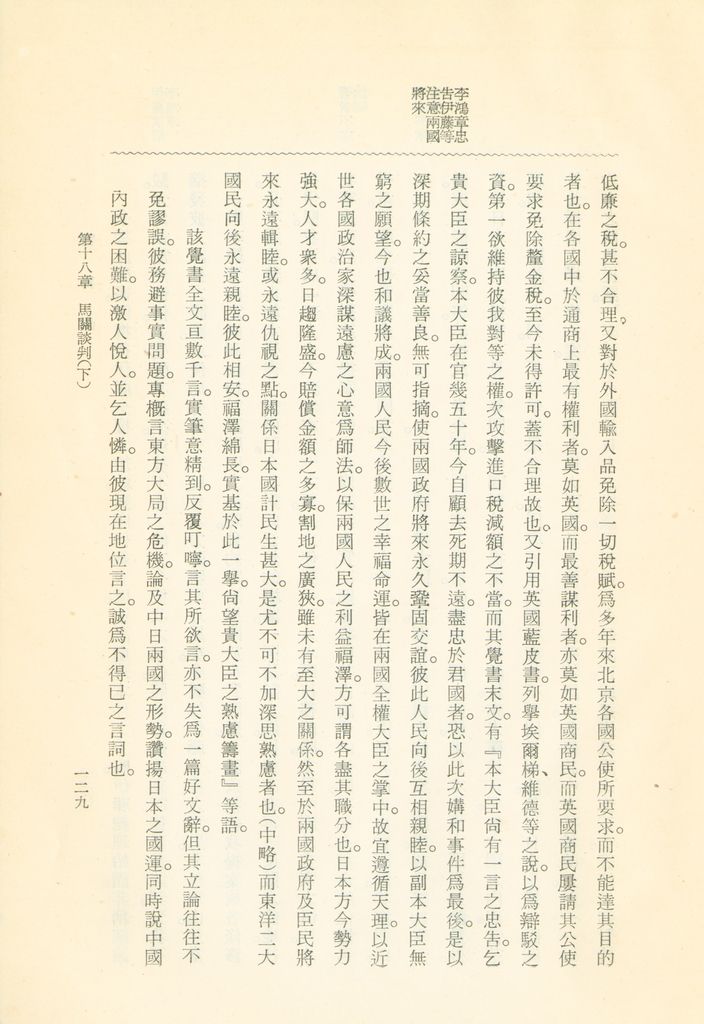 李鴻章忠
告伊藤等
注意兩國
將來
低廉之稅。甚不合理。又對於外國輸入品免除一切稅賦。爲多年來北京各國公使所要求。而不能達其目的
者也。在各國中於通商上最有權利者。莫如英國。而最善謀利者。亦莫如英國商民。而英國商民屢請其公使
要求免除釐金稅。至今未得許可。蓋不合理故也。又引用英國藍皮書。列擧埃爾梯、維德等之說。以爲辯駁之
資。第一欲維持彼我對等之權。次攻擊進口稅減額之不當。而其覺書末文。有『本大臣尙有一言之忠告。乞
貴大臣之諒察。本大臣在官幾五十年。今自顧去死期不遠。盡忠於君國者。恐以此次媾和事件爲最後。是以
深期條約之妥當善良。無可指摘。使兩國政府將來永久鞏固交誼。彼此人民向後互相親睦。以副本大臣無
窮之願望。今也和議將成。兩國人民今後數世之幸福命運。皆在兩國全權大臣之掌中。故宜遵循天理。以近
世各國政治家深謀遠慮之心意爲師法。以保兩國人民之利益福澤。方可謂各盡其職分也。日本方今勢力
強大。人才衆多。日趨隆盛。今賠償金額之多寡。割地之廣狹。雖未有至大之關係。然至於兩國政府及臣民將
來永遠輯睦。或永遠仇視之點。關係日本國計民生甚大。是尤不可不加深思熟慮者也。(中略)而東洋二大
國民向後永遠親睦。彼此相安。福澤綿長。實基於此一擧。尙望貴大臣之熟慮籌畫』等語。
該覺書全文亘數千言。實筆意精到。反覆叮嚀。言其所欲言。亦不失爲一篇好文辭。但其立論往往不
免謬誤。彼務避事實問題。專槪言東方大局之危機。論及中日兩國之形勢。讚揚日本之國運。同時說中國
內政之困難。以激人悅人。並乞人憐。由彼現在地位言之。誠爲不得已之言詞也。
第十八章 馬關談判(下)
一二九